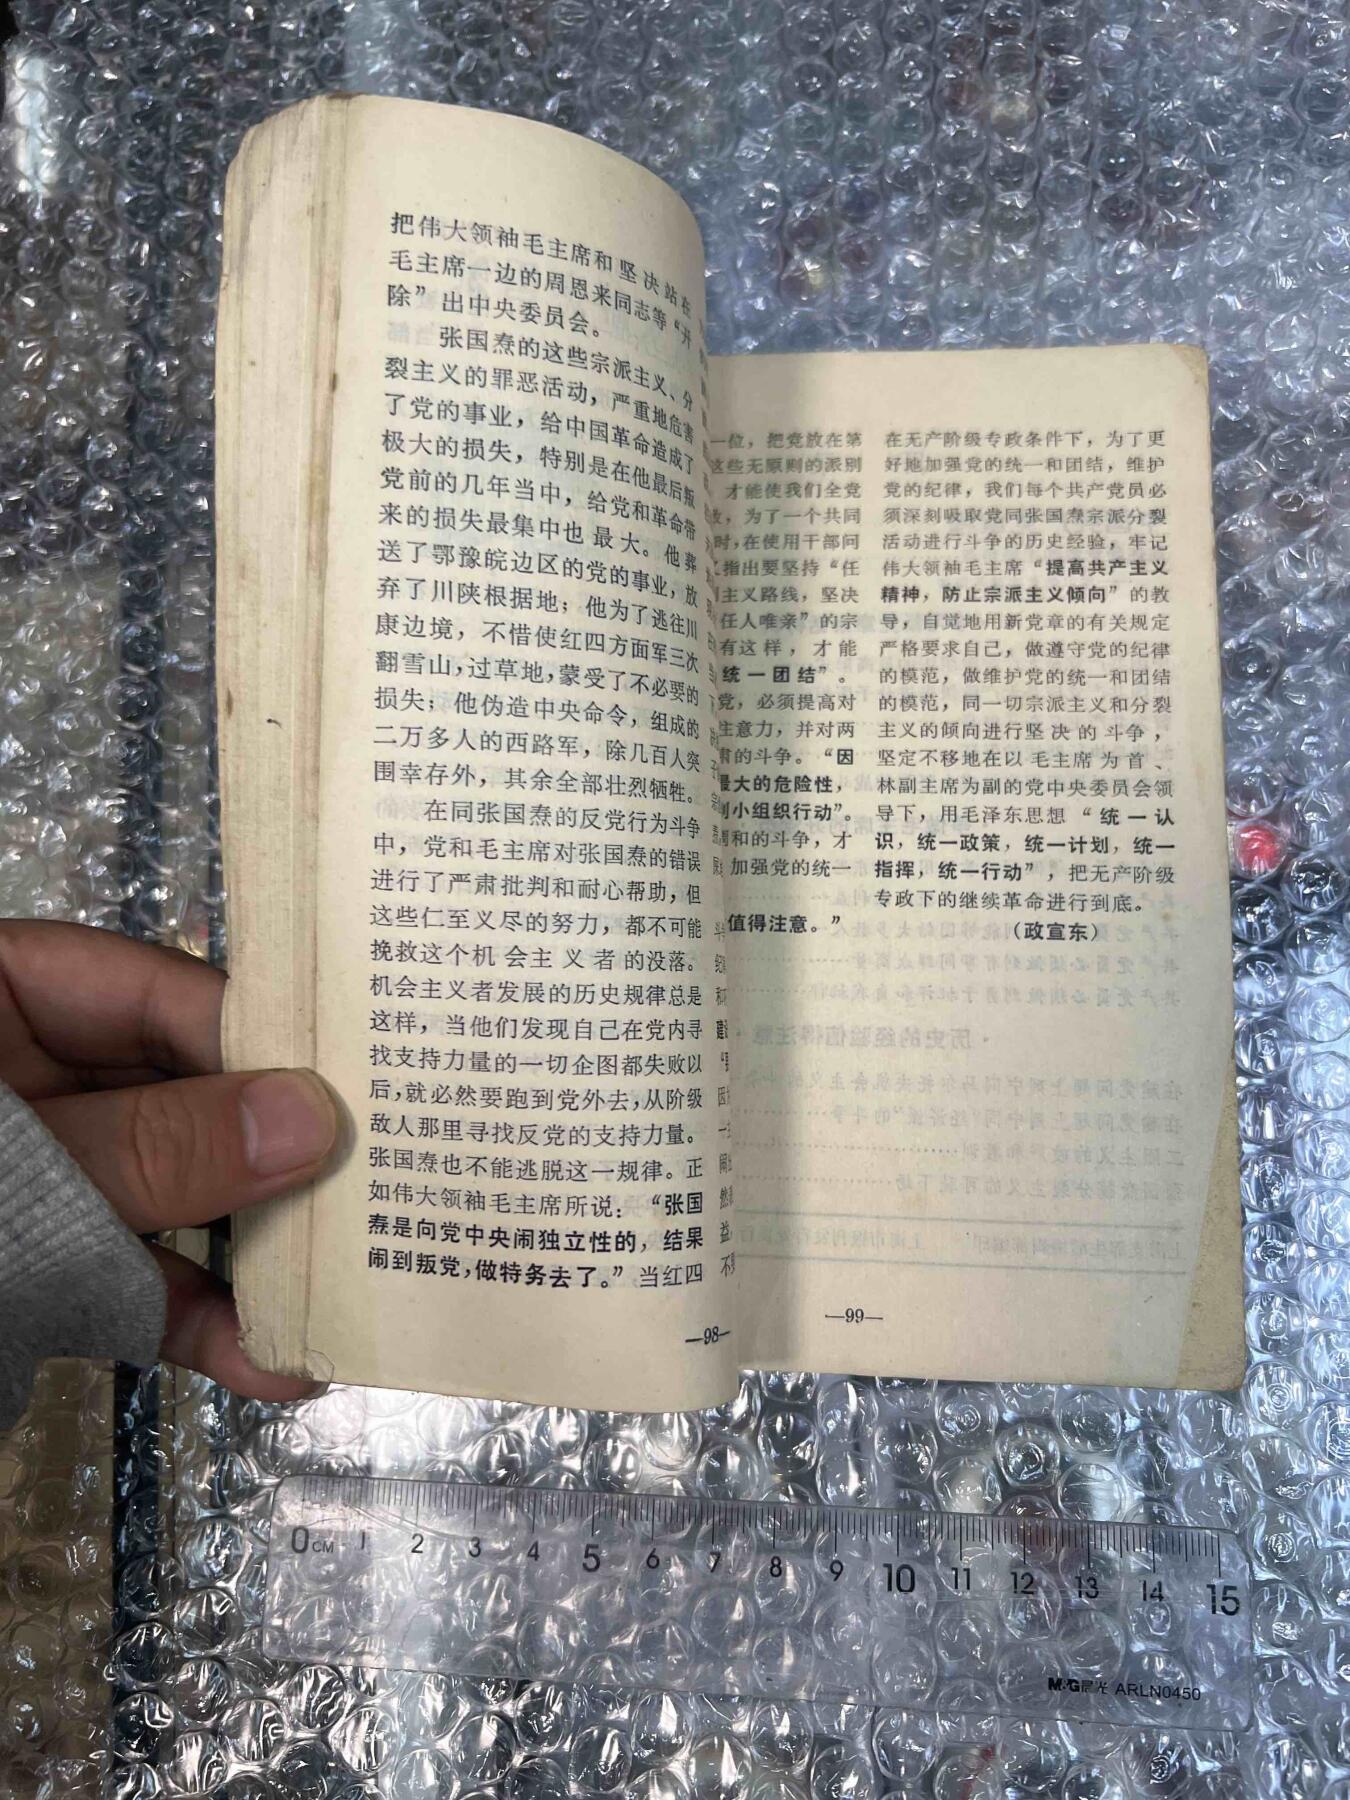 把伟大领袖毛主席和坚决站在
毛主席一边的周恩来同志等“开
除”出中央委员会。
张国焘的这些宗派主义、分
裂主义的罪恶活动，严重地危害
了党的事业，给中国革命造成了
极大的损失，特别是在他最后叛
党前的几年当中，给党和革命带
来的损失最集中也最大。他葬
送了鄂豫皖边区的党的事业，放
弃了川陕根据地；他为了逃往川
康边境，不惜使红四方面军三次
翻雪山，过草地，蒙受了不必要的
损失；他伪造中央命令，组成的
二万多人的西路军，除几百人突
围幸存外，其余全部壮烈牺牲。
在同张国焘的反党行为斗争
中，党和毛主席对张国焘的错误
进行了严肃批判和耐心帮助，但
这些仁至义尽的努力，都不可能
挽救这个机会主义者的没落。
机会主义者发展的历史规律总是
这样，当他们发现自己在党内寻
找支持力量的一切企图都失败以
后，就必然要跑到党外去，从阶级
敌人那里寻找反党的支持力量。
张国焘也不能逃脱这一规律。正
如伟大领袖毛主席所说：“张国
焘是向党中央闹独立性的，结果
闹到叛党，做特务去了。”当红四
—98—
一位，把党放在第
这些无原则的派别
才能使我们全党
，为了一个共同
时，在使用干部问
指出要坚持“任
主义路线，坚决
任人唯亲”的宗
有这样，才能
统一团结”。
党，必须提高对
注意力，并对两
肃的斗争。“因
最大的危险性，
小组织行动”。
调和的斗争，才
加强党的统一
值得注意。”
在无产阶级专政条件下，为了更
好地加强党的统一和团结，维护
党的纪律，我们每个共产党员必
须深刻吸取党同张国焘宗派分裂
活动进行斗争的历史经验，牢记
伟大领袖毛主席“提高共产主义
精神，防止宗派主义倾向”的教
导，自觉地用新党章的有关规定
严格要求自己，做遵守党的纪律
的模范，做维护党的统一和团结
的模范，同一切宗派主义和分裂
主义的倾向进行坚决的斗争，
坚定不移地在以毛主席为首、
林副主席为副的党中央委员会领
导下，用毛泽东思想“统一认
识，统一政策，统一计划，统一
指挥，统一行动”，把无产阶级
专政下的继续革命进行到底。
（政宣东）
—99—
0CM 1 2 3 4 5 6 7 8 9 10 11 12 13 14 15
M&G晨光 ARLN0450